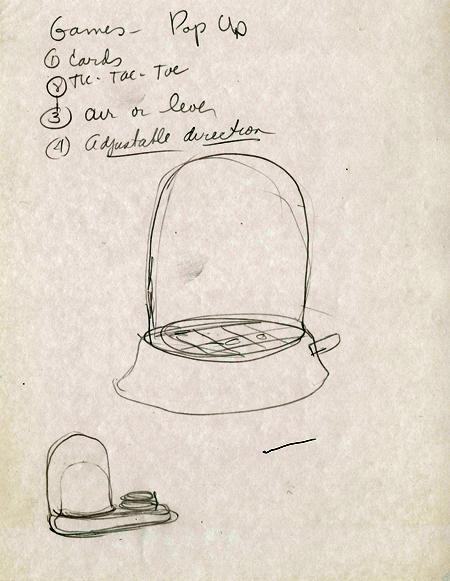 Games - Pop Up
① Cards
② Tic-Tac-Toe
③ air or lever
④ Adjustable direction